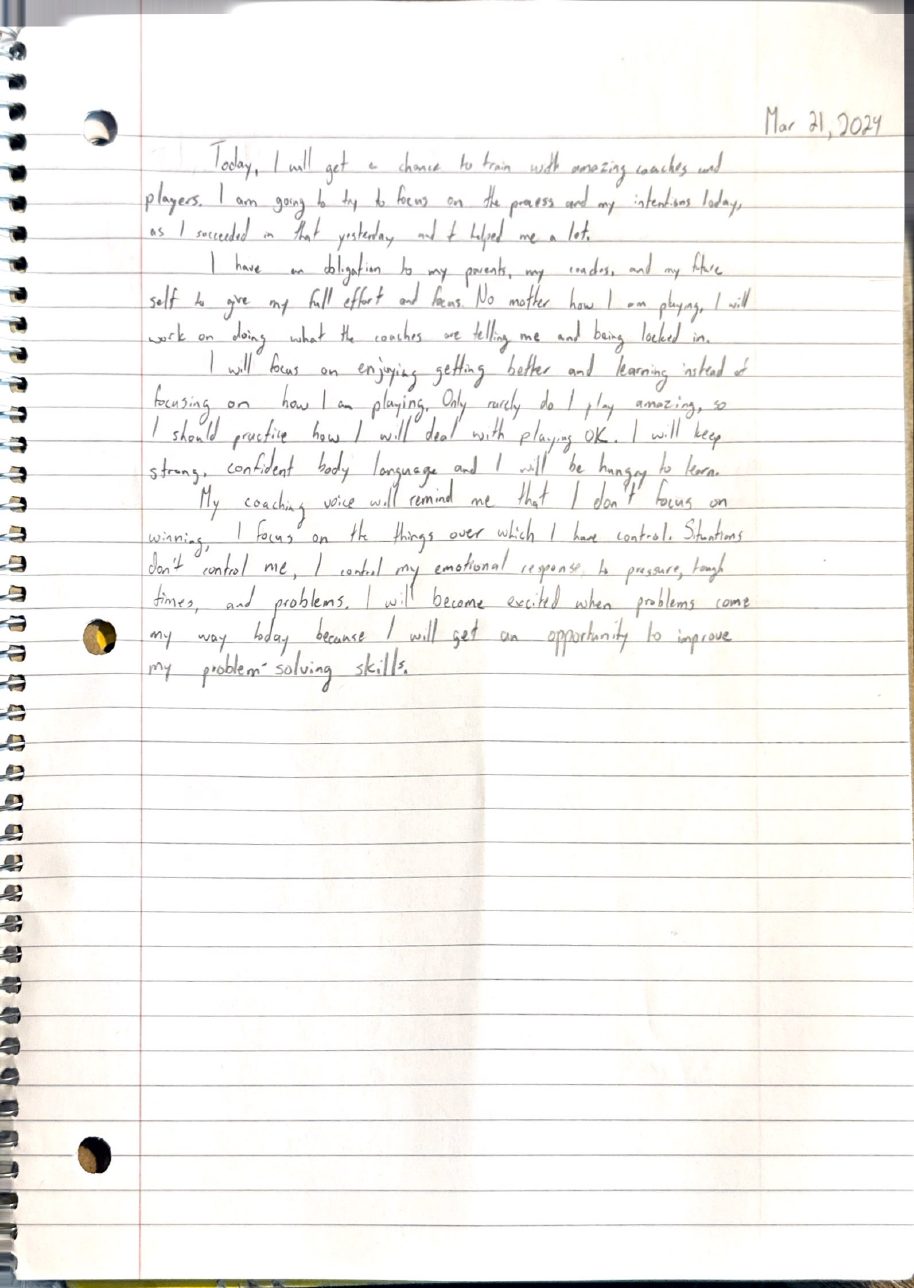 Mar 21, 2024
Today, I will get a chance to train with amazing coaches and
players. I am going to try to focus on the process and my intentions today,
as I succeeded in that yesterday and it helped me a lot.
I have an obligation to my parents, my coaches, and my future
self to give my full effort and focus. No matter how I am playing, I will
work on doing what the coaches are telling me and being locked in.
I will focus on enjoying getting better and learning instead of
focusing on how I am playing. Only rarely do I play amazing, so
I should practice how I will deal with playing OK. I will keep
strong, confident body language and I will be hungry to learn.
My coaching voice will remind me that I don't focus on
winning, I focus on the things over which I have control. Situations
don't control me, I control my emotional response to pressure, tough
times, and problems. I will become excited when problems come
my way today because I will get an opportunity to improve
my problem-solving skills.